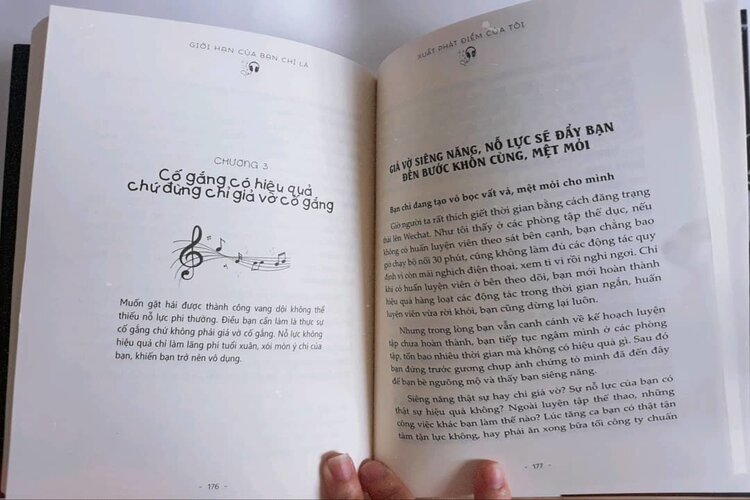 GIỚI HẠN CỦA BẠN CHỈ LÀ
CHƯƠNG 3
Cố gắng có hiệu quả
chứ đừng chỉ giả vờ cố gắng
Muốn gặt hái được thành công vang dội không thể
thiếu nỗ lực phi thường. Điều bạn cần làm là thực sự
cố gắng chứ không phải giả vờ cố gắng. Nỗ lực không
hiệu quả chỉ làm lãng phí tuổi xuân, xói mòn ý chí của
bạn, khiến bạn trở nên vô dụng.
- 176 -
XUẤT PHÁT ĐIỂM CỦA TÔI
GIẢ VỜ SIÊNG NĂNG, NỖ LỰC SẼ ĐẨY BẠN
ĐẾN BƯỚC KHỐN CÙNG, MỆT MỎI
Bạn chỉ đang tạo vỏ bọc vất vả, mệt mỏi cho mình
Giờ người ta rất thích giết thời gian bằng cách đăng trạng
thái lên Wechat. Như tôi thấy ở các phòng tập thể dục, nếu
không có huấn luyện viên theo sát bên cạnh, bạn chẳng bao
giờ chạy bộ nổi 30 phút, cũng không làm đủ các động tác quy
định vì còn mải nghịch điện thoại, xem ti vi rồi nghỉ ngơi. Chỉ
khi có huấn luyện viên ở bên theo dõi, bạn mới hoàn thành
hiệu quả hàng loạt các động tác trong thời gian ngắn, huấn
luyện viên vừa rời khỏi, bạn cũng dừng lại luôn.
Nhưng trong lòng bạn vẫn canh cánh về kế hoạch luyện
tập chưa hoàn thành, bạn tiếp tục ngâm mình ở các phòng
tập, tốn bao nhiêu thời gian mà không có hiệu quả gì. Sau đó
bạn đứng trước gương chụp ảnh chứng tỏ mình đã đến đây
để bạn bè ngưỡng mộ và thấy bạn siêng năng.
Siêng năng thật sự hay chỉ giả vờ? Sự nỗ lực của bạn có
thật sự hiệu quả không? Ngoài luyện tập thể thao, những
công việc khác bạn làm thế nào? Lúc tăng ca bạn có thật tận
tâm tận lực không, hay phải ăn xong bữa tối công ty chuẩn
- 177 -